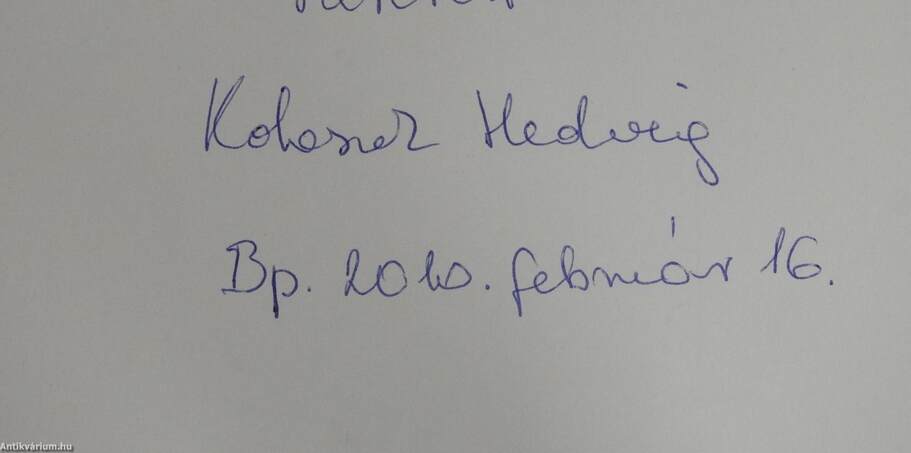 Kolosnez Hedvig
Bp. 2010. február 16.
Antikvárium.hu